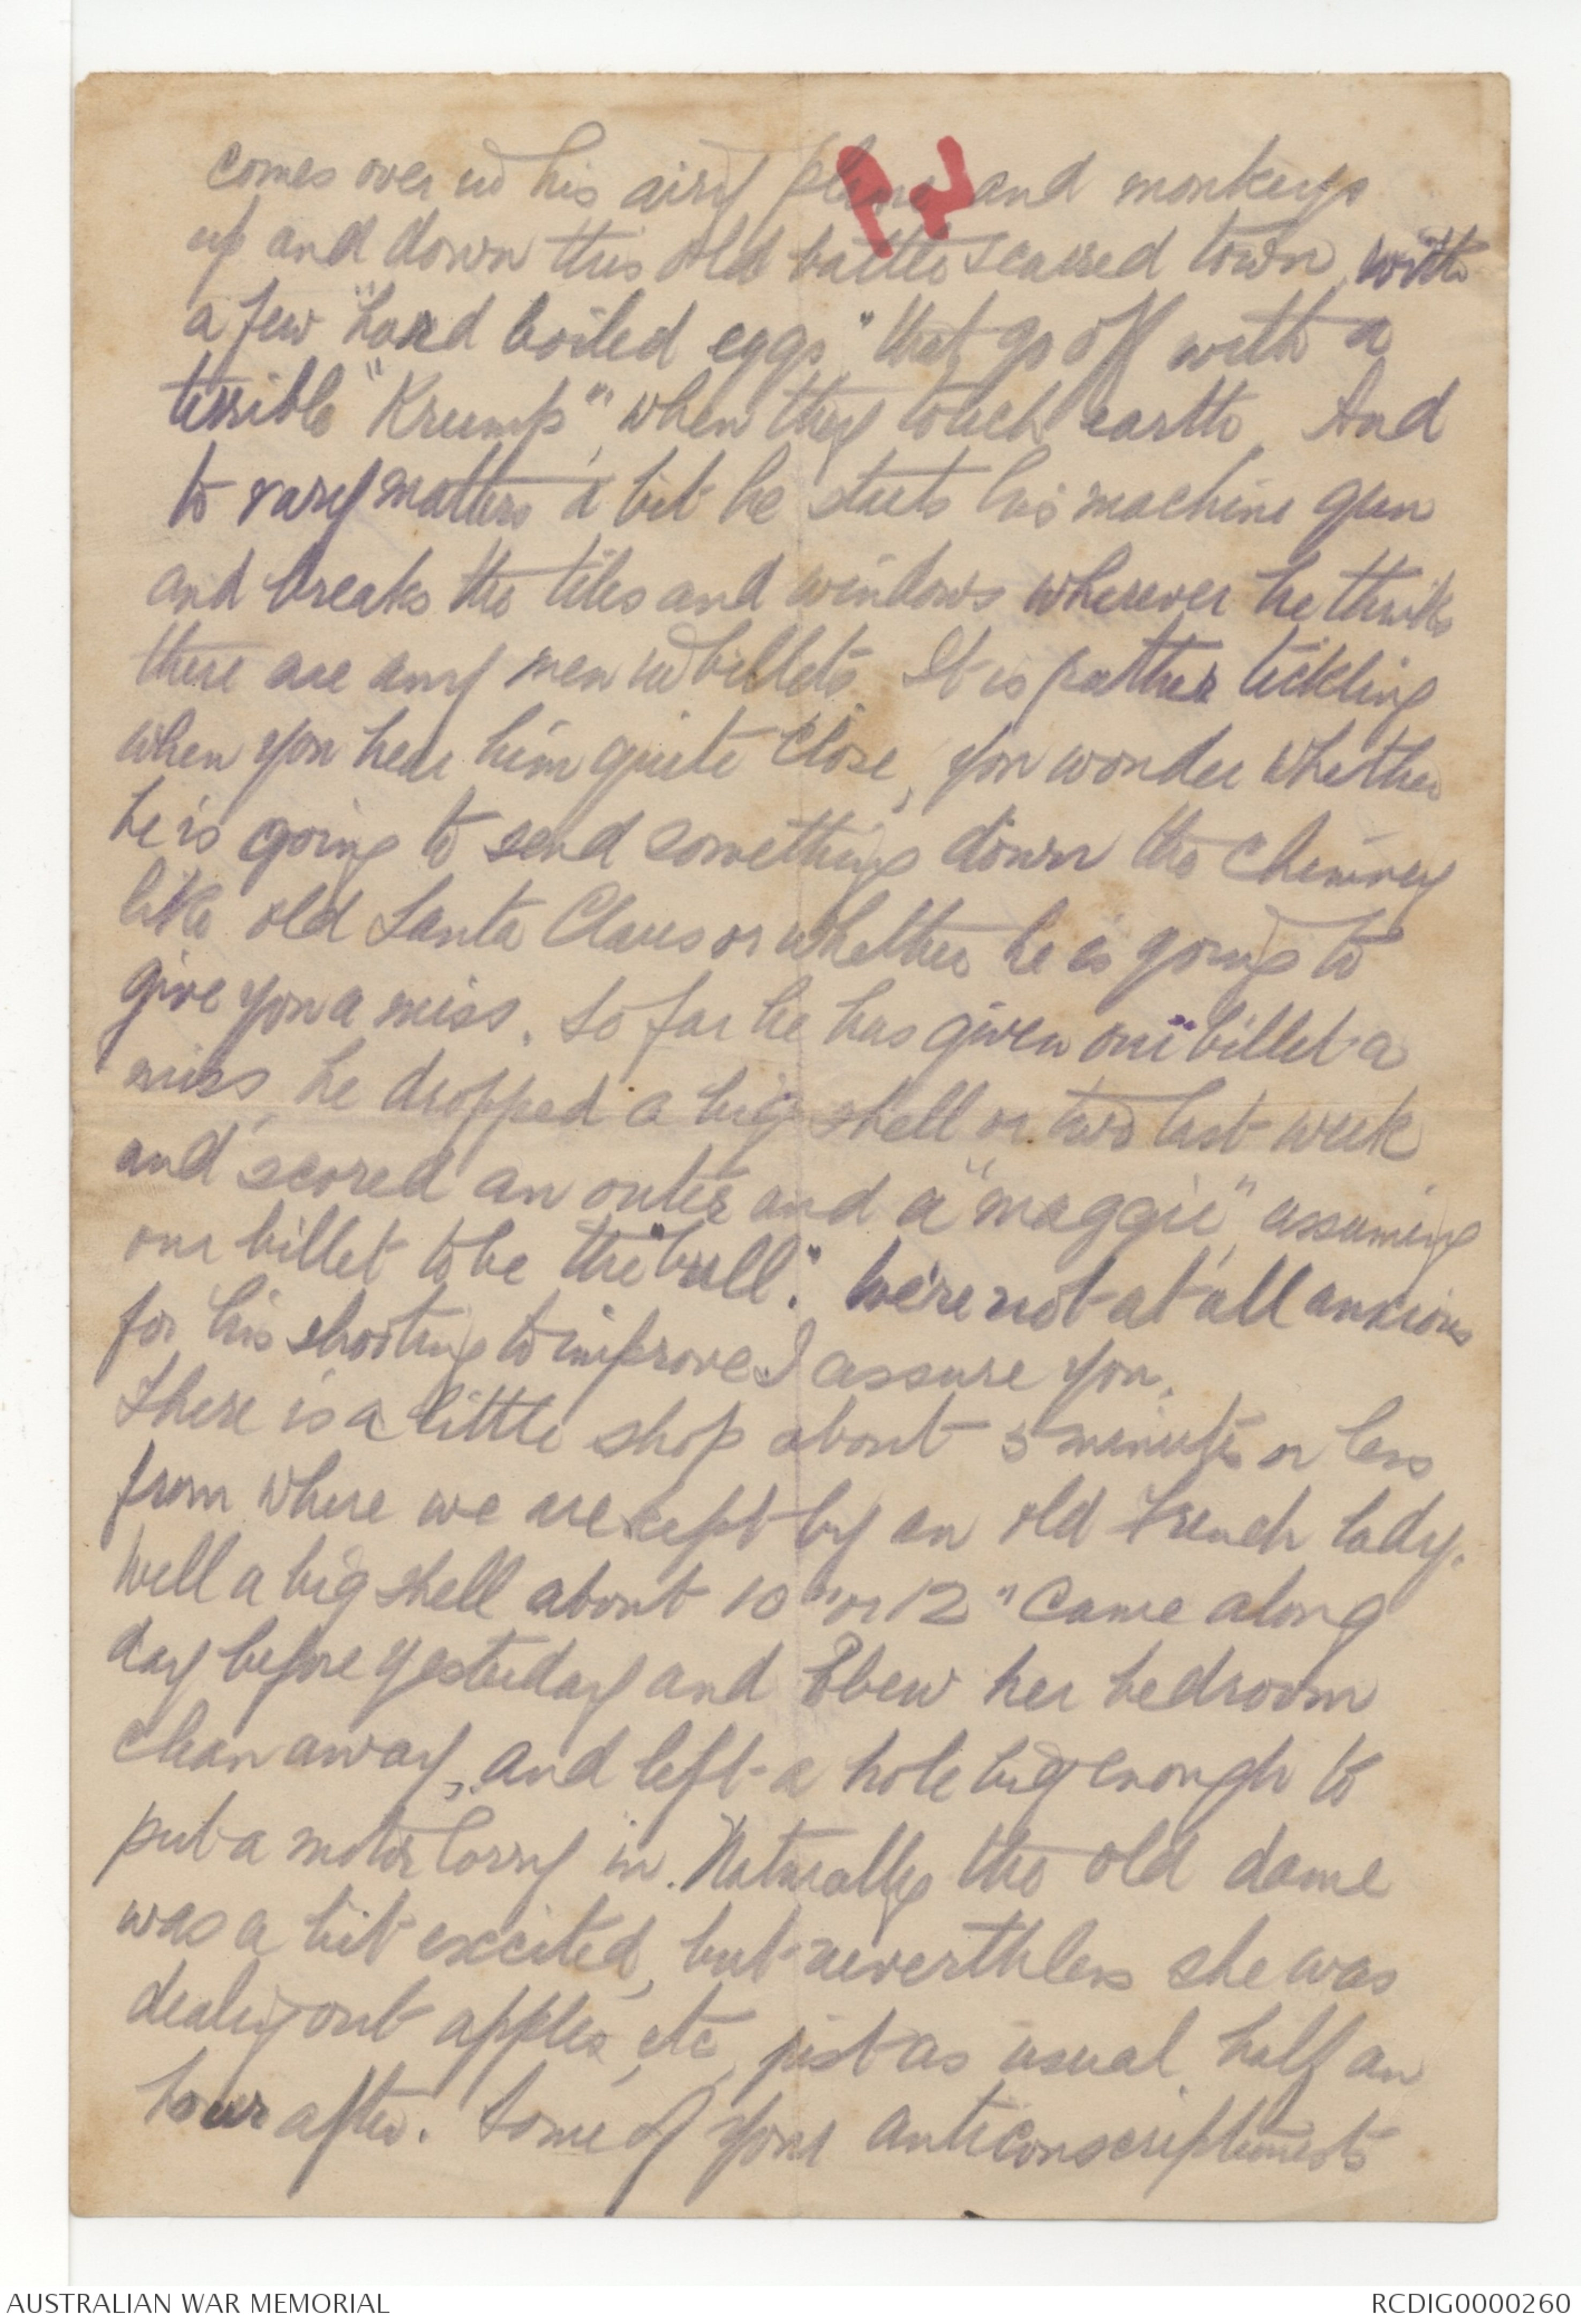 comes over in his airy plane and monkeys
up and down this old battle scarred town, with
a few "hard boiled eggs," that go off with a
terrible "Krump", when they touch earth. And
to vary matters a bit he starts his machine gun
and breaks the tiles and windows wherever he thinks
there are any men in billets. It is rather tickling
when you hear him quite close, you wonder whether
he is going to send something down the chimney
like old Santa Claus or whether he is going to
give you a miss. So far he has given our billet a
miss, he dropped a big shell or two last week
and scored an outer and a "maggie", assuming
our billet to be the "bull". We're not at all anxious
for his shooting to improve I assure you.
There is a little shop about 5 minutes or less
from where we are kept by an old French lady.
Well a big shell about 10" or 12" came along
day before yesterday and blew her bedroom
clean away, and left a hole big enough to
put a motor lorry in. Naturally the old dame
was a bit excited, but neverthless she was
dealing out apples, etc, just as usual half an
hour after. Some of your anticonscriptionists
AUSTRALIAN WAR MEMORIAL
RCDIG0000260